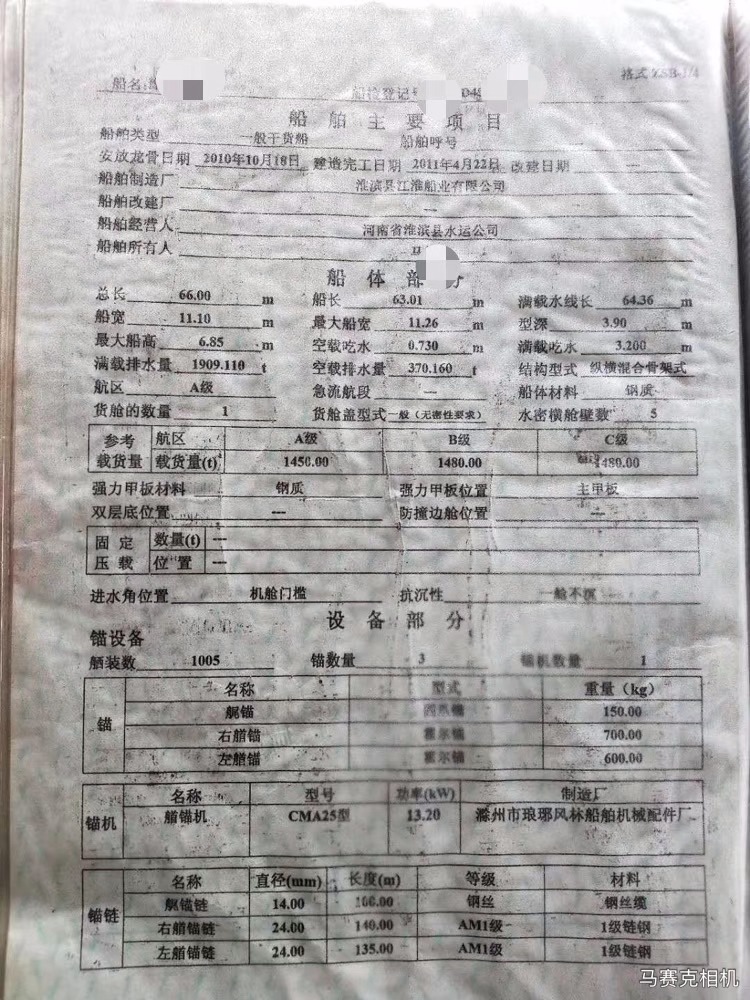 船名
船检登记 D4
格式 ZSB-1/4
船舶主要项目
船舶类型 一般干货船 船舶呼号
安放龙骨日期 2010年10月18日 建造完工日期 2011年4月22日 改建日期 —
船舶制造厂 淮滨县江淮船业有限公司
船舶改建厂 —
船舶经营人 河南省淮滨县水运公司
船舶所有人
船体部分
总长 66.00 m 船长 63.01 m 满载水线长 64.36 m
船宽 11.10 m 最大船宽 11.26 m 型深 3.90 m
最大船高 6.85 m 空载吃水 0.730 m 满载吃水 3.200 m
满载排水量 1909.110 t 空载排水量 370.160 t 结构型式 纵横混合骨架式
航区 A级 急流航段 — 船体材料 钢质
货舱的数量 1 货舱盖型式 一般（无密性要求） 水密横舱壁数 5
参考 航区 A级 B级 C级
载货量 载货量(t) 1450.00 1480.00 1480.00
强力甲板材料 钢质 强力甲板位置 主甲板
双层底位置 --- 防撞边舱位置 —
固定 数量(t) ---
压载 位置 ---
进水角位置 机舱门槛 抗沉性 一舱不沉
设备部分
锚设备
舾装数 1005 锚数量 3 锚机数量 1
锚 名称 型式 重量（kg）
艉锚 150.00
右艏锚 霍尔锚 700.00
左艏锚 霍尔锚 600.00
锚机 名称 型号 功率(kW) 制造厂
艏锚机 CMA25型 13.20 滁州市琅琊风林船舶机械配件厂
锚链 名称 直径(mm) 长度(m) 等级 材料
艉锚链 14.00 100.00 钢丝 钢丝缆
右艏锚链 24.00 140.00 AM1级 1级链钢
左艏锚链 24.00 135.00 AM1级 1级链钢
马赛克相机